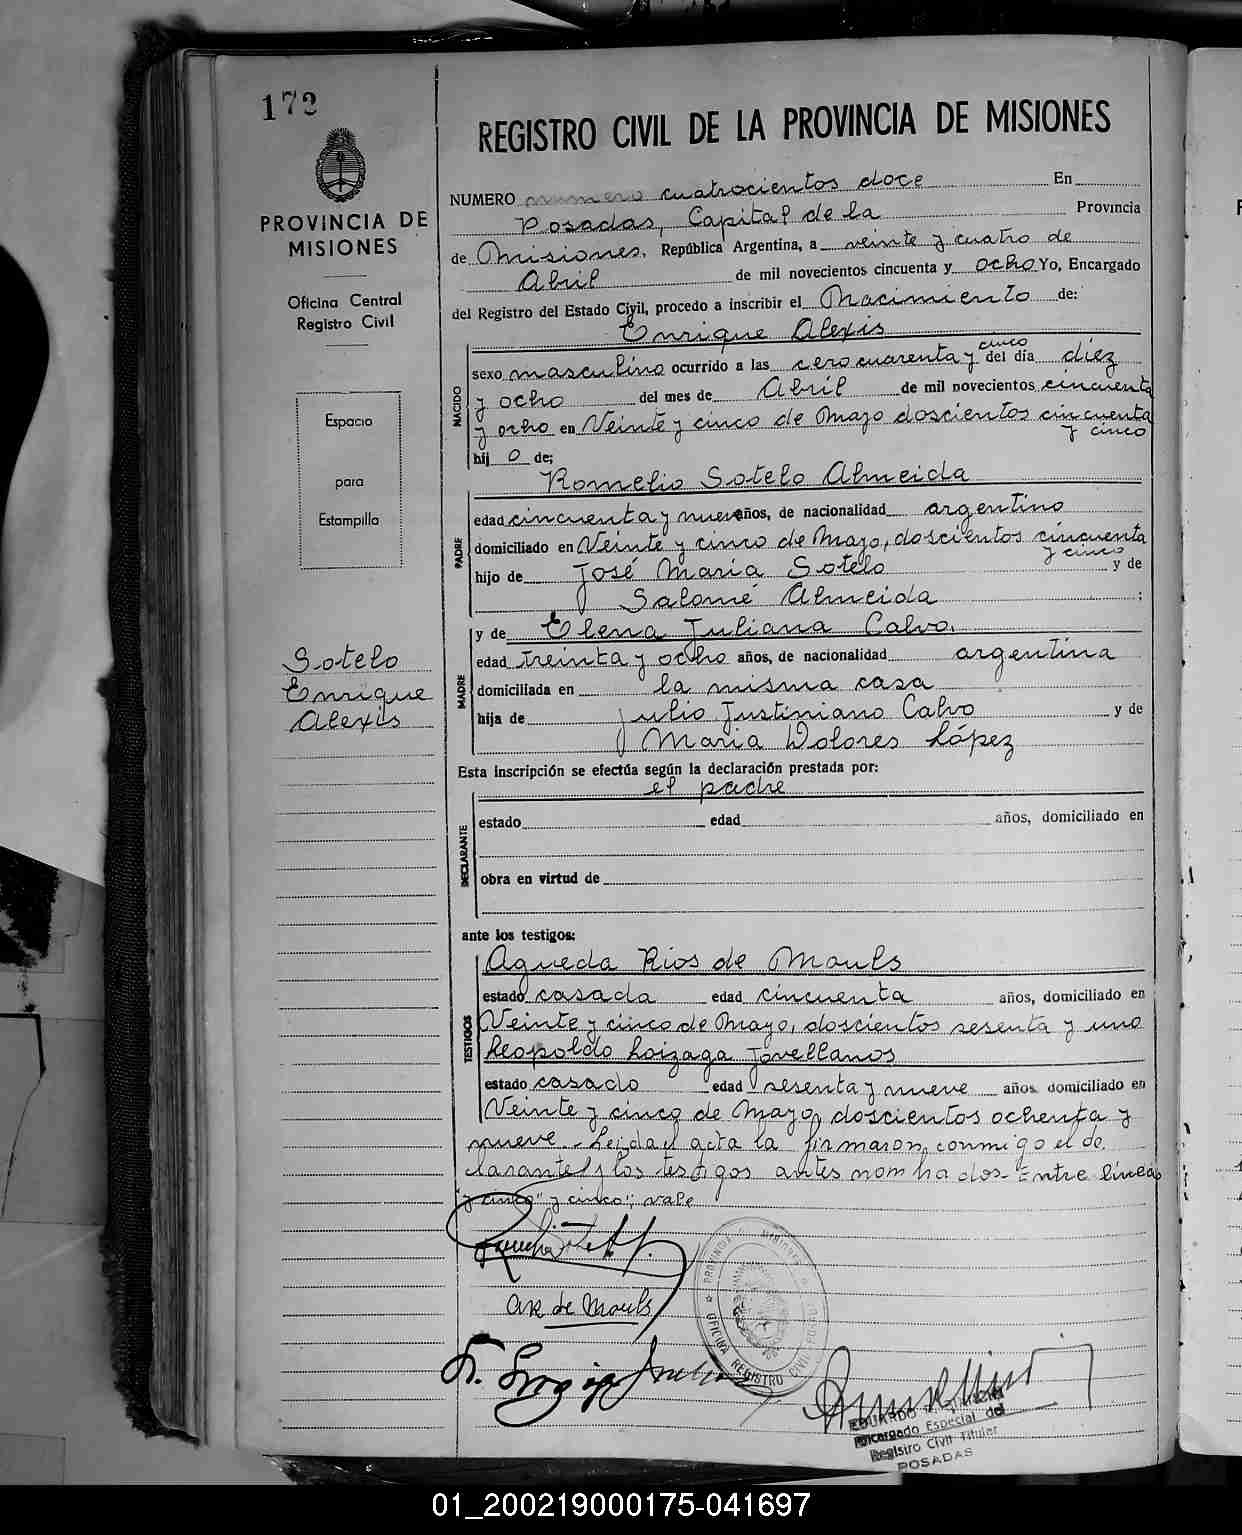 172
PROVINCIA DE
MISIONES
Oficina Central
Registro Civil
Espacio
para
Estampilla
Sotelo
Enrique
Alexis
REGISTRO CIVIL DE LA PROVINCIA DE MISIONES
NUMERO numero cuatrocientos doce En
Posadas, Capital de la Provincia
de Misiones, República Argentina, a veinte y cuatro de
Abril de mil novecientos cincuenta y ocho Yo, Encargado
del Registro del Estado Civil, procedo a inscribir el Nacimiento de:
Enrique Alexis
NACIDO
cinco
sexo masculino ocurrido a las cero cuarenta y del día diez
y ocho del mes de Abril de mil novecientos cincuenta
y ocho en Veinte y cinco de Mayo doscientos cincuenta
y cinco
hij o de;
Romelio Sotelo Almeida
PADRE
edad cincuenta y nueve años, de nacionalidad argentino
domiciliado en Veinte y cinco de Mayo, doscientos cincuenta
y cinco
hijo de José Maria Sotelo y de
Salomé Almeida ;
y de Elena Juliana Calvo.
MADRE
edad treinta y ocho años, de nacionalidad argentina
domiciliada en la misma casa
hija de Julio Justiniano Calvo y de
Maria Dolores López
Esta inscripción se efectúa según la declaración prestada por:
el padre
DECLARANTE
estado edad años, domiciliado en
obra en virtud de
ante los testigos:
Agueda Rios de Mouls
TESTIGOS
estado casada edad cincuenta años, domiciliado en
Veinte y cinco de Mayo, doscientos sesenta y uno
Leopoldo Loizaga Jovellanos
estado casado edad sesenta y nueve años domiciliado en
Veinte y cinco de Mayo, doscientos ochenta y
nueve. Leida el acta la firmaron conmigo el de
clarante y los testigos antes nombrados - Entre lineas
"y cinco" y cinco"; vale
de Mouls
PROVINCIA DE MISIONES
OFICINA REGISTRO CIVIL
EDUARDO
Encargado Especial del
Registro Civil Titular
POSADAS
01_200219000175-041697